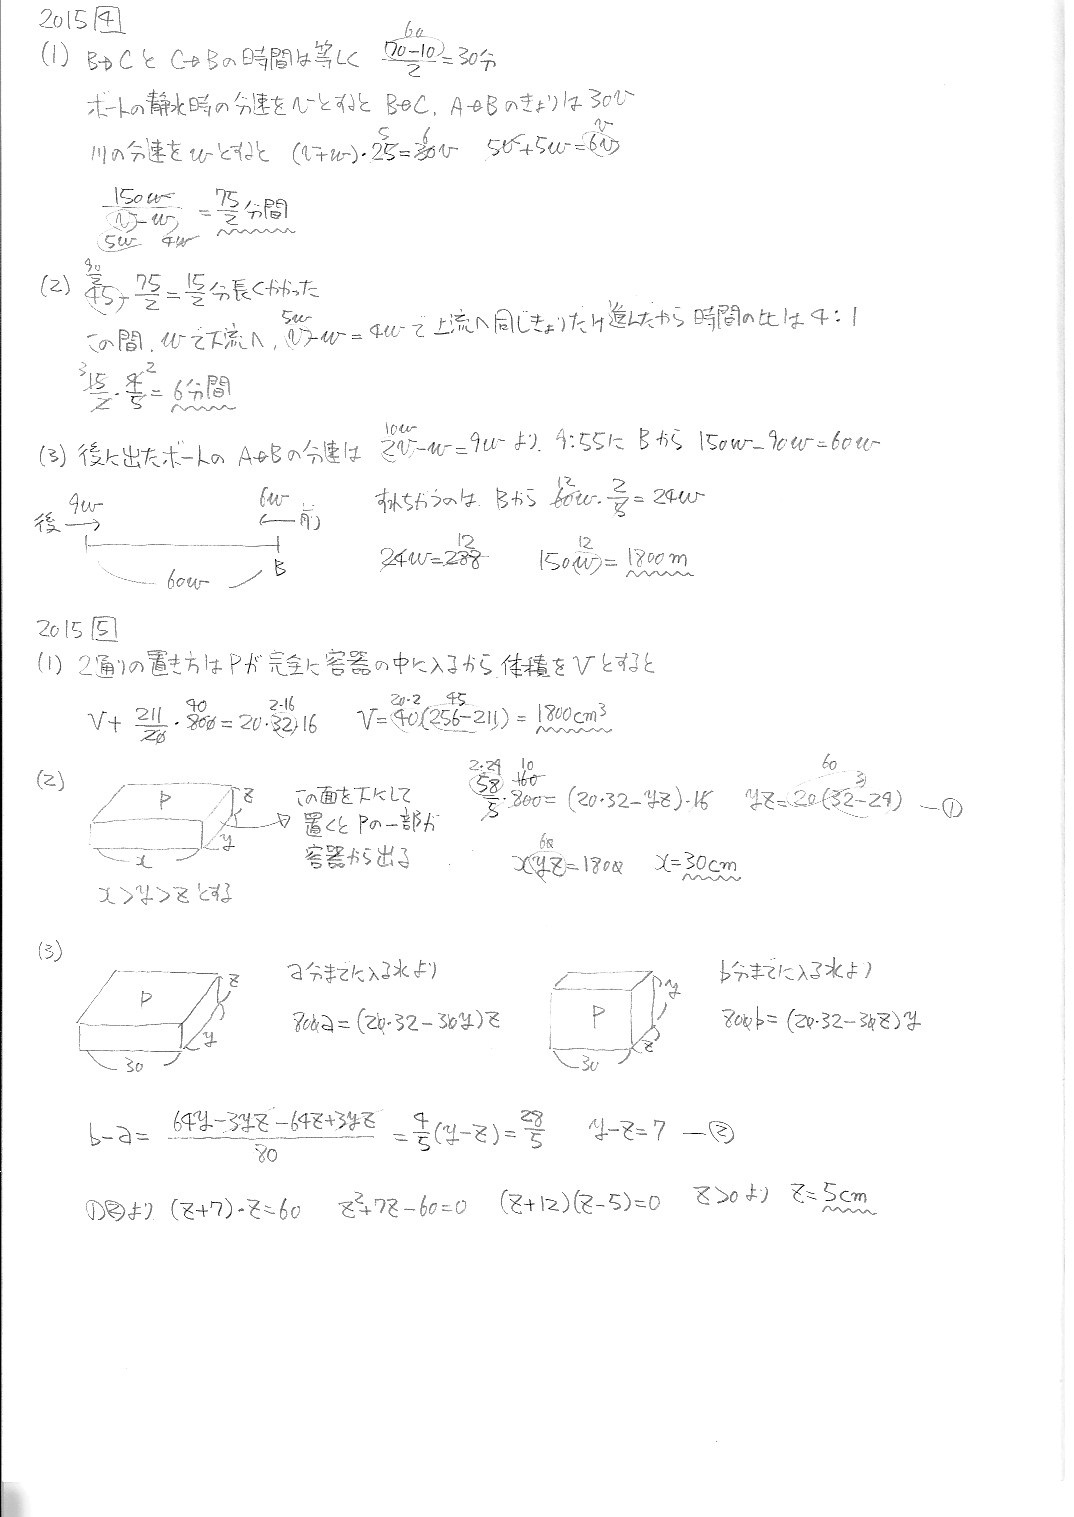 2015 4
(1) B→CとC→Bの時間は等しく (70-10)/2=30分 60
ボートの静水時の分速をvとするとB→C, A→Bのきょりは30v
川の分速をwとすると (v+w)・25=30v 5 6 5v+5w=6v v
150w/(v-w)=75/2分間
5w 4w
(2) 45-75/2=15/2分長くかかった 90/2
この間, wで下流へ, v-w=4wで上流へ同じきょりだけ進んだから時間の比は4:1 5w
15/2・4/5=6分間 3 2
(3) 後に出たボートのA→Bの分速は 2v-w=9wより, 9:55にBから 150w-90w=60w 10w
後 9w 6w 前
すれちがうのは Bから 60w・2/5=24w 12
60w B
24w=288 12 150w=1800m 12
2015 5
(1) 2通りの置き方はPが完全に容器の中に入るから体積をVとすると
V+211/20・800=20・32・16 40 2・16 V=40(256-211)=1800cm³ 20・2 45
(2) P x y z
この面を下にして置くとPの一部が容器から出る
58/5・800=(20・32-yz)・16 2・29 160 10 yz=20(32-29) 3 60 ―①
xyz=1800 60 x=30cm
x>y>zとする
(3) P 30 y z
a分までに入る水より
800a=(20・32-30y)z
P 30 z y
b分までに入る水より
800b=(20・32-30z)y
b-a=(64y-3yz-64z+3yz)/80=4/5(y-z)=28/5 y-z=7 ―②
①②より (z+7)・z=60 z²+7z-60=0 (z+12)(z-5)=0 z>0より z=5cm